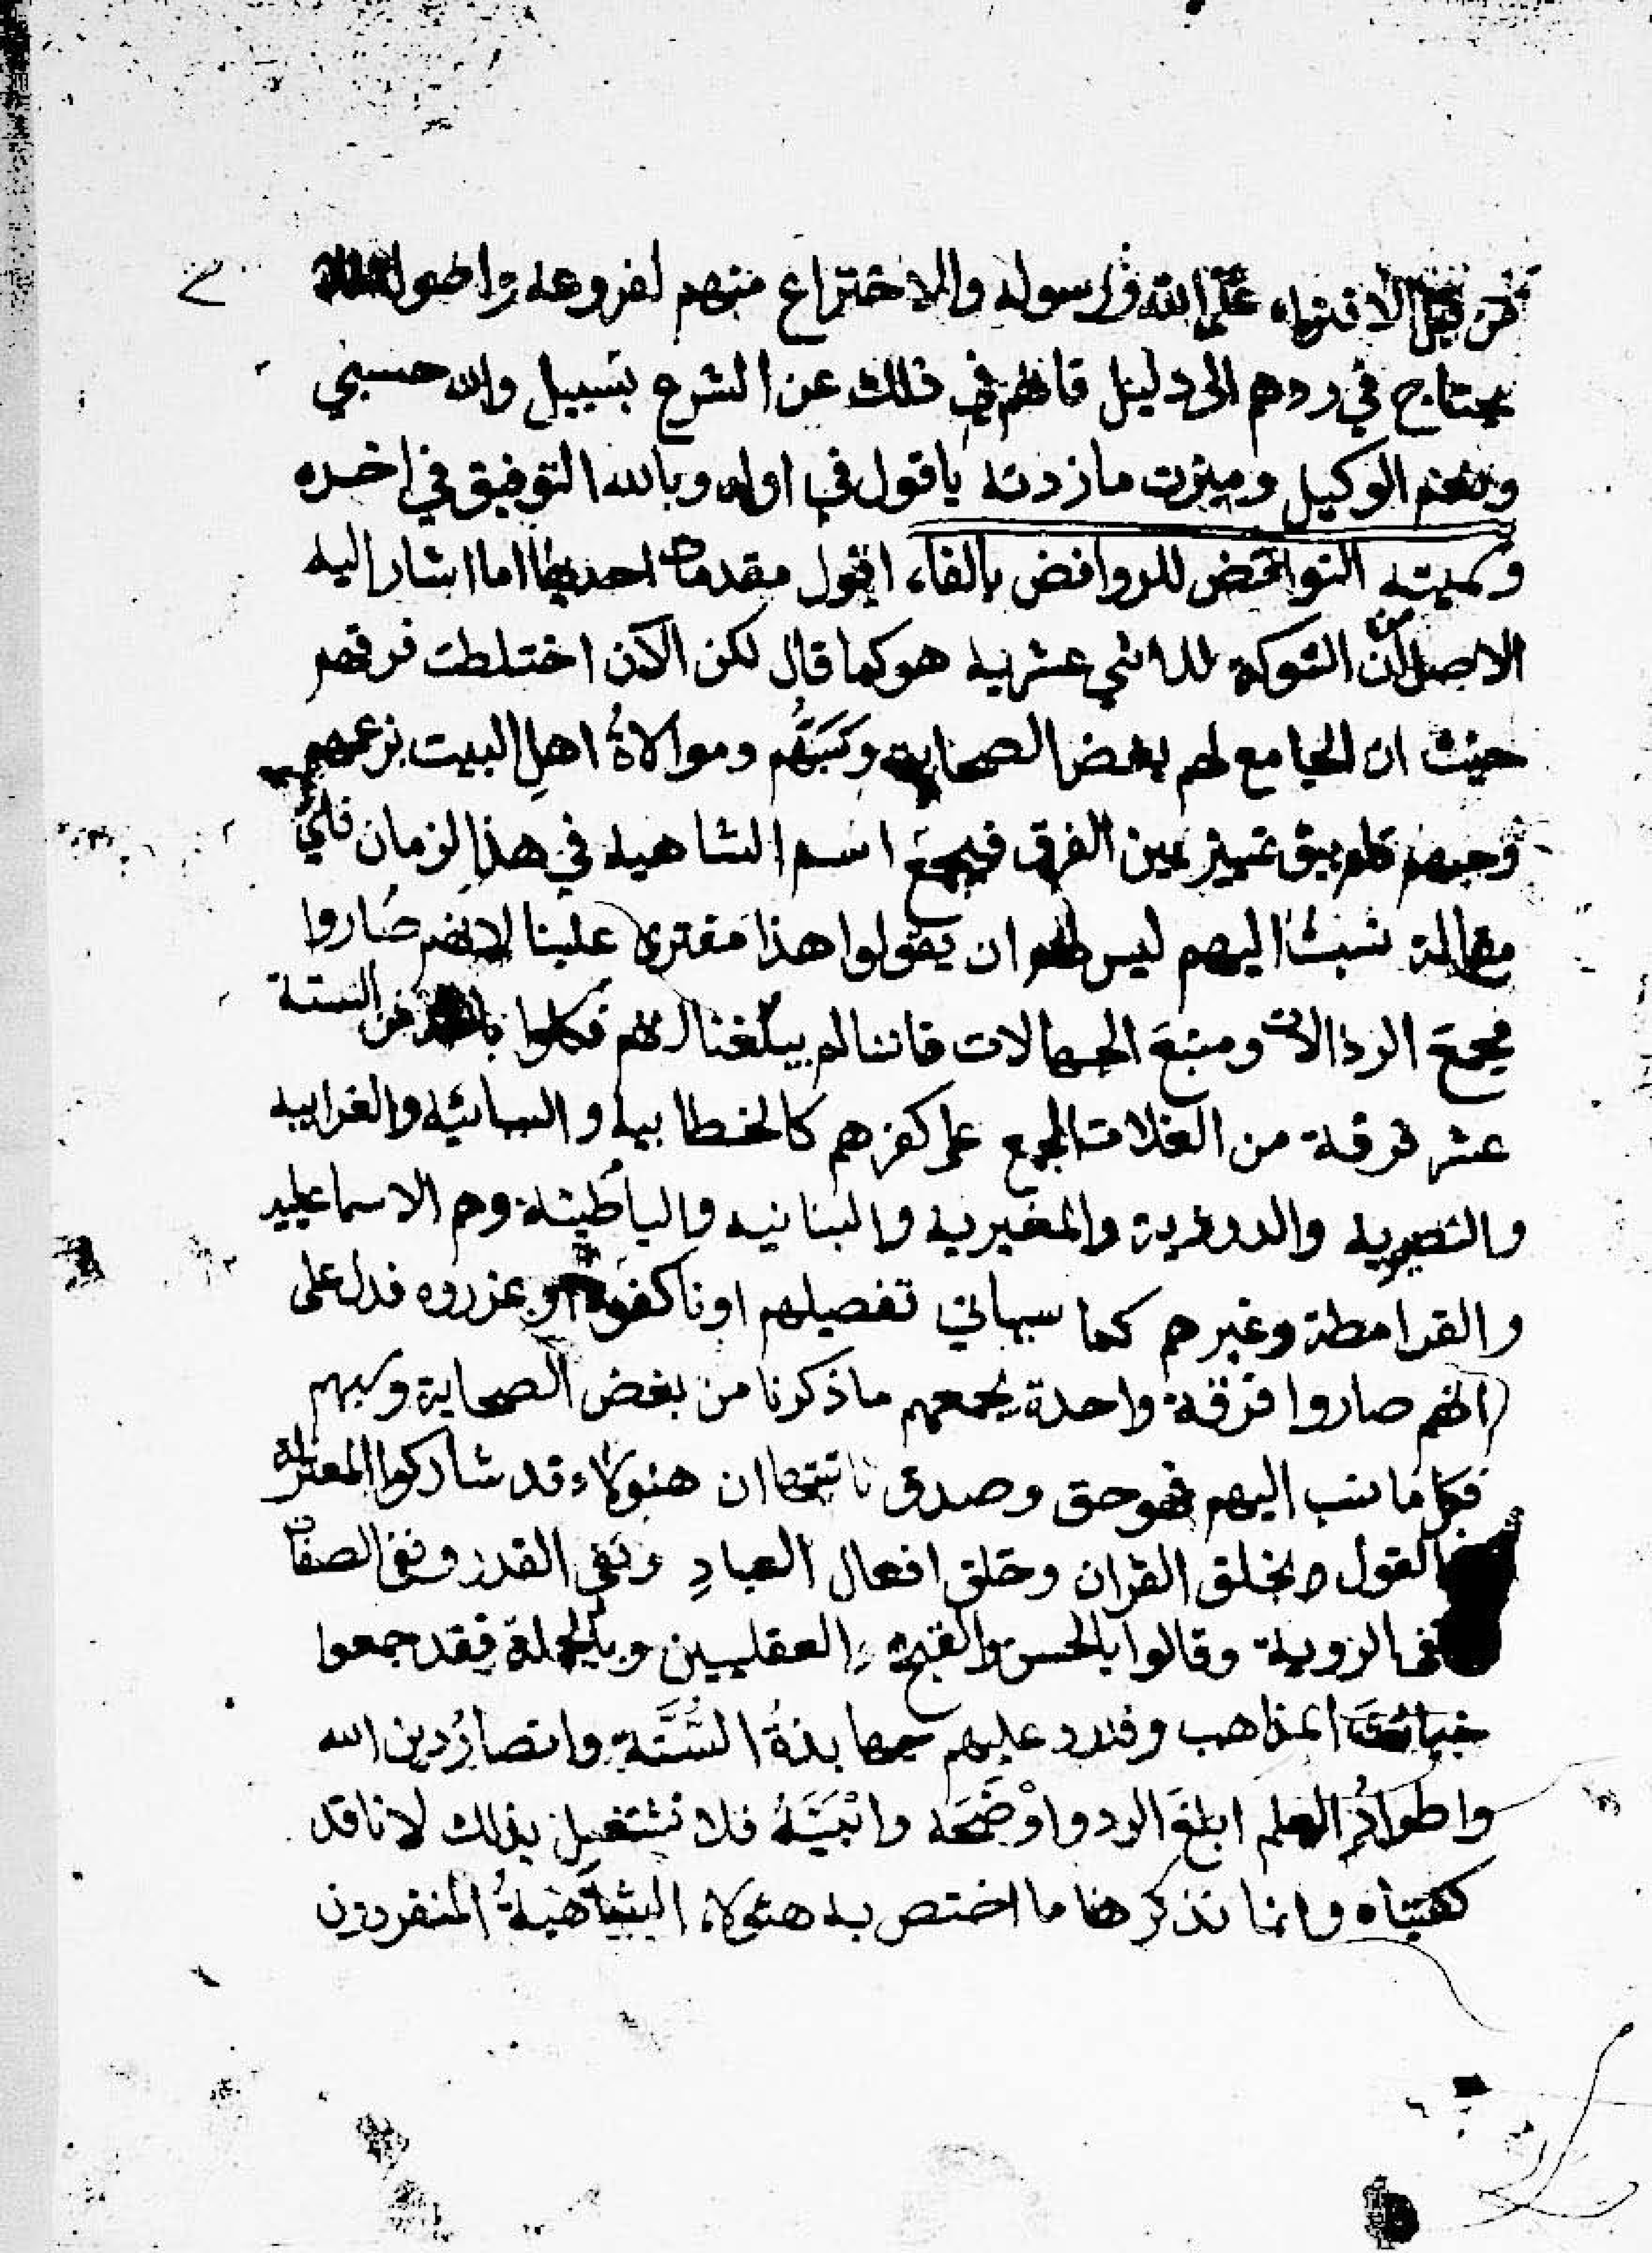 من قبيل الافتراء على الله ورسوله والاختراع منهم لفروعه واصوله
يحتاج في ردهم الى دليل فانهم في ذلك عن الشرع بسبيل والله حسبي
ونعم الوكيل وميزت ما زدته باقول في اوله وبالله التوفيق في اخره
وسميته النوافض للروافض بالفاء، اقول مقدمات احديها اما اشار اليه
الاصل من ان الشوكة للاثني عشريه هو كما قال لكن الآن اختلطت فرقهم
حيث ان الجامع لهم بغض الصحابه وسَبُّهم وموالاةُ اهلِ البيت بزعمهم
وحبهم فلم يبق تمييز بين الفرق فيجمع اسم الشاهيه في هذا الزمان فاي
مقالة نسبت اليهم ليس لهم ان يقولوا هذا مفترى علينا لانهم صاروا
مجمعَ الرذالات ومنبعَ الجهالات فاننا لم يبلغنا انهم من الستة
عشر فرقة من الغلات المجمع على كفرهم كالخطابيه والسبائيه والغرابيه
والنصيريه والمغيريه والبنانيه والباطنية وهم الاسماعيليه
والقرامطة وغيرهم كما سياتي تفصيلهم او عزروه فدل على
انهم صاروا فرقة واحدة يجمعهم ما ذكرنا من بغض الصحابة وسبهم
فكل ما نسب اليهم فهو حق وصدق ثانيتها ان هئولاء قد شاركوا المعتزلة
القول بخلق القران وخلق افعال العبادِ ونفي القدر ونفي الصفات
نفي الروية وقالوا بالحسن والقبح العقليين وبالجملة فقد جمعوا
خبائث المذاهب وقد رد عليهم جهابذةُ السُّنَّة وانصارُ دين الله
واطوادُ العلم ابلغَ الرد واوْضَحَه وابْيَنَهُ فلا نشتغل بذلك لانا قد
كفيناه وانما نذكر هنا ما اختص به هئولاء الشاهيةُ المنفردون